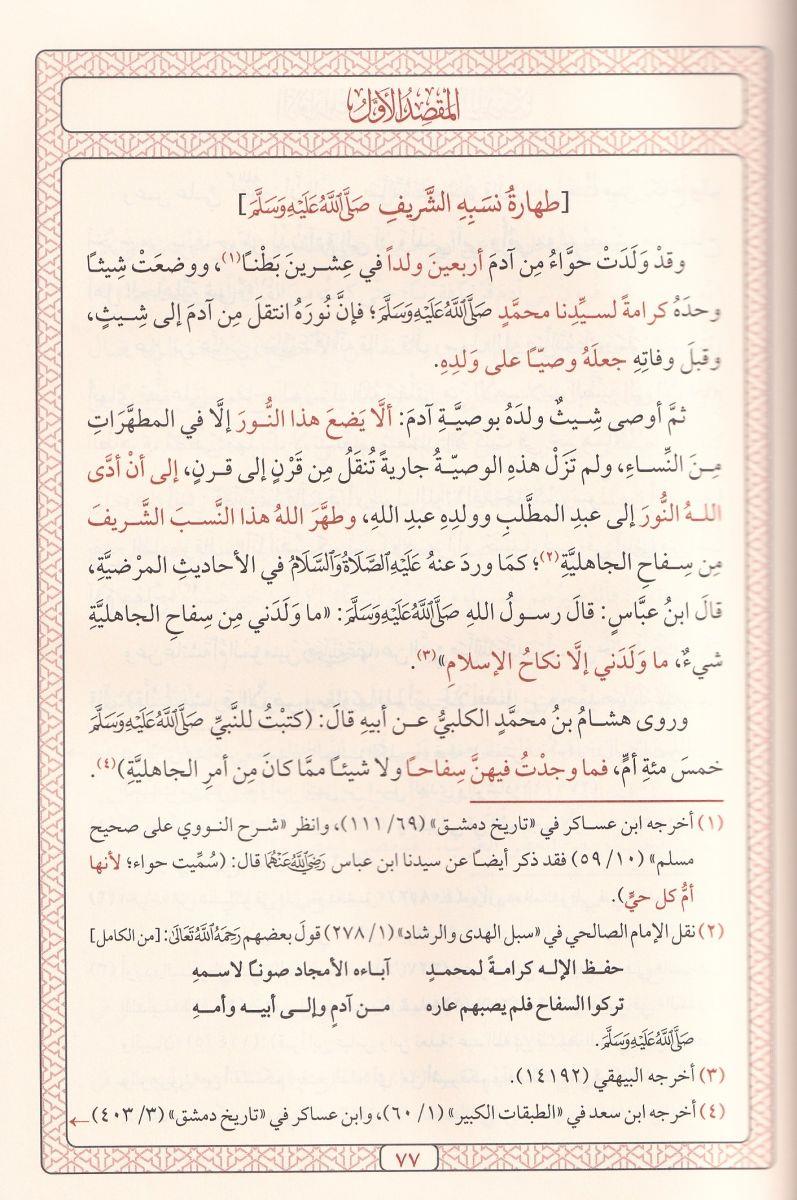 المقصد الأول
[طهارةُ نسَبِهِ الشَّريفِ صَلَّى اللَّهُ عَلَيْهِ وَسَلَّمَ]
وقدْ وَلَدَتْ حوَّاءُ مِن آدمَ أربعينَ ولداً في عِشرينَ بَطْناً(١)، ووضعَتْ شِيثاً
وحدَهُ كرامةً لسيِّدِنا محمَّدٍ صَلَّى اللَّهُ عَلَيْهِ وَسَلَّمَ؛ فإنَّ نُورَهُ انتقلَ مِن آدمَ إلى شِيثٍ،
وقبلَ وفاتِهِ جعلَهُ وصيّاً على ولَدِهِ.
ثمَّ أوصى شِيثٌ ولدَهُ بوصيَّةِ آدمَ: ألَّا يَضعَ هذا النُّورَ إلَّا في المطهَّرَاتِ
مِنَ النِّساءِ، ولم تزَلْ هذهِ الوصيّةُ جاريةً تُنقَلُ مِن قَرْنٍ إلى قرنٍ، إلى أنْ أدَّى
اللهُ النُّورَ إلى عبدِ المطَّلبِ وولدِهِ عبدِ اللهِ، وطهَّرَ اللهُ هذا النَّسبَ الشَّريفَ
مِن سِفاحِ الجاهليَّةِ(٢)؛ كمَا وردَ عنهُ عَلَيْهِ الصَّلَاةُ وَالسَّلَامُ في الأحاديثِ المرْضيَّةِ،
قالَ ابنُ عبَّاسٍ: قالَ رسولُ اللهِ صَلَّى اللَّهُ عَلَيْهِ وَسَلَّمَ: «ما وَلَدَني مِن سِفاحِ الجاهليَّةِ
شيءٌ، ما وَلَدَني إلَّا نكاحُ الإسلامِ»(٣).
وروى هشامُ بنُ محمَّدٍ الكلبيُّ عن أبيهِ قالَ: (كتبْتُ للنَّبيِّ صَلَّى اللَّهُ عَلَيْهِ وَسَلَّمَ
خمسَ مئةِ أمٍّ، فما وجدْتُ فيهنَّ سِفاحاً ولا شيئاً ممَّا كانَ مِن أمرِ الجاهليَّةِ)(٤).
(١) أخرجه ابن عساكر في «تاريخ دمشق» (٦٩/ ١١١)، وانظر «شرح النووي على صحيح
مسلم» (١٠/ ٥٩) فقد ذكر أيضاً عن سيدنا ابن عباس رَضِيَ اللَّهُ عَنْهُمَا قال: (سُمِّيت حواء؛ لأنها
أمُّ كل حيٍّ).
(٢) نقل الإمام الصالحي في «سبل الهدى والرشاد» (١/ ٢٧٨) قولَ بعضهم رَحِمَهُ اللَّهُ تَعَالَى: [من الكامل]
حفظ الإله كرامةً لمحمدٍ آباءه الأمجاد صوناً لاسمهِ
تركوا السفاح فلم يصبهم عاره من آدمٍ وإلى أبيه وأمهِ
صَلَّى اللَّهُ عَلَيْهِ وَسَلَّمَ.
(٣) أخرجه البيهقي (١٤١٩٢).
(٤) أخرجه ابن سعد في «الطبقات الكبير» (١/ ٦٠)، وابن عساكر في «تاريخ دمشق» (٣/ ٤٠٣) ←
٧٧